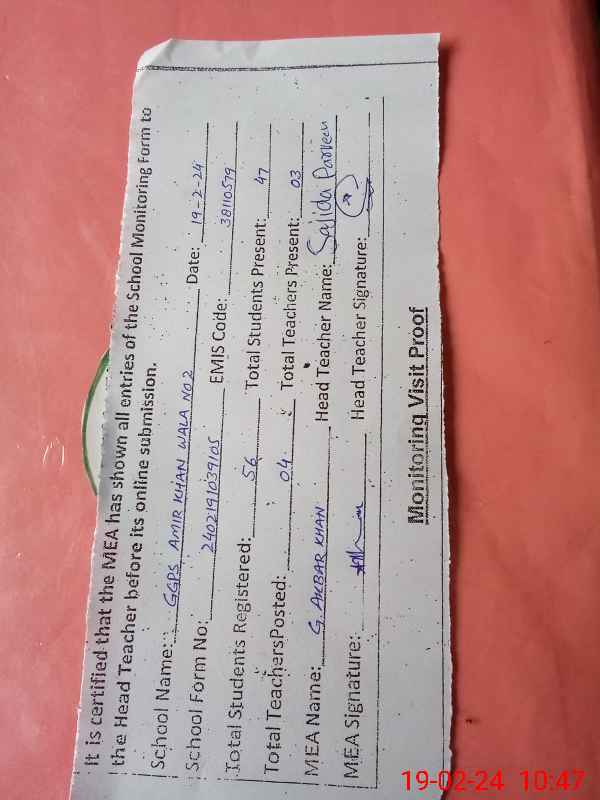 It is certified that the MEA has shown all entries of the School Monitoring Form to
the Head Teacher before its online submission.
School Name: GGPS AMIR KHAN WALA NO 2 Date: 19-2-24
School Form No: 2402191039105 EMIS Code: 38110579
Total Students Registered: 56 Total Students Present: 47
Total TeachersPosted: 04 Total Teachers Present: 03
MEA Name: G. AKBAR KHAN Head Teacher Name: Sajida Parveen
MEA Signature: Head Teacher Signature:
Monitoring Visit Proof
19-02-24 10:47